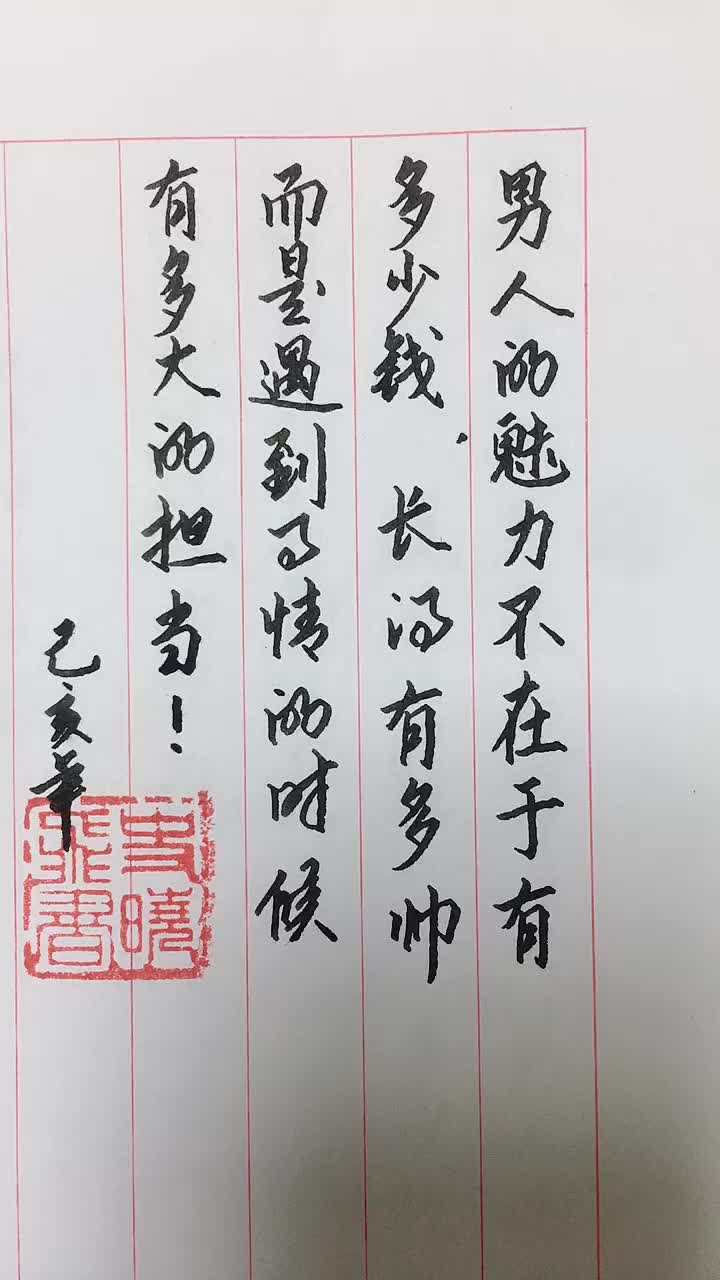 男人的魅力不在于有
多少钱、长得有多帅
而是遇到事情的时候
有多大的担当！
己亥年